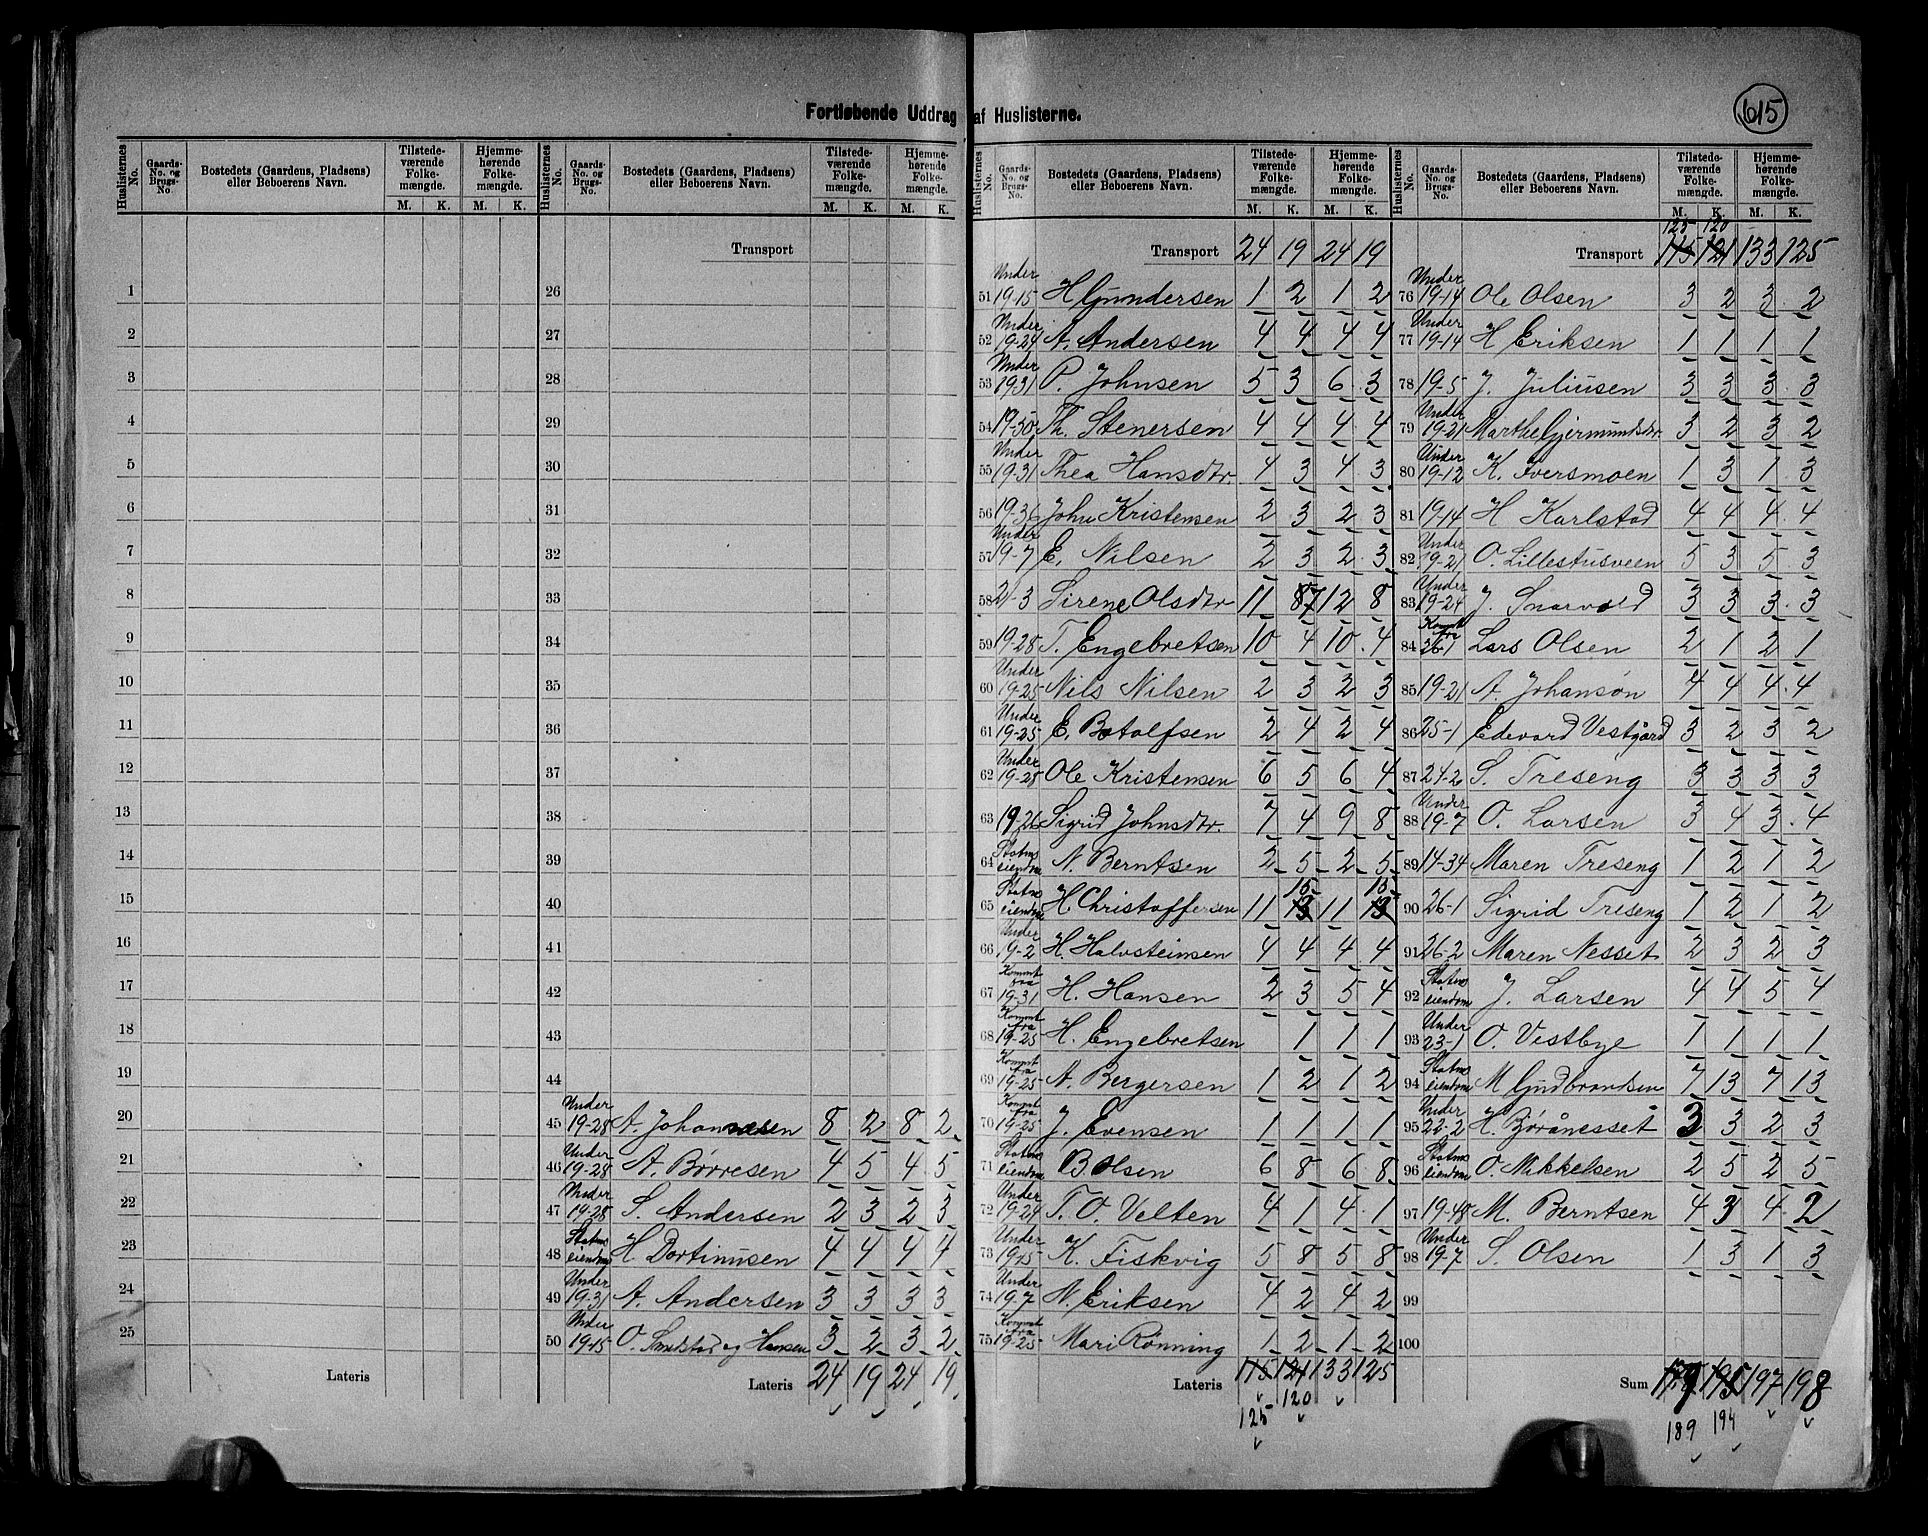 Fortløbende Uddrag af Huslisterne.
615
Huslisternes No. Gaards-No. og Brugs-No. Bostedets (Gaardens, Pladsens) eller Beboerens Navn. Tilstedeværende Folkemængde. M. K. Hjemmehørende Folkemængde. M. K.
Transport
1
2
3
4
5
6
7
8
9
10
11
12
13
14
15
16
17
18
19
20
21
22
23
24
25
Lateris
Huslisternes No. Gaards-No. og Brugs-No. Bostedets (Gaardens, Pladsens) eller Beboerens Navn. Tilstedeværende Folkemængde. M. K. Hjemmehørende Folkemængde. M. K.
Transport
26
27
28
29
30
31
32
33
34
35
36
37
38
39
40
41
42
43
44
45 Under 19-28 A. Johannesen 8 2 8 2
46 Under 19-28 A. Børresen 4 5 4 5
47 Under 19-28 S. Andersen 2 3 2 3
48 Statns eiendom H. Dortinusen 4 4 4 4
49 Under 19-31 A. Andersen 3 3 3 3
50 Under 19-15 O. Smelstad og Hansen 3 2 3 2
Lateris 24 19 24 19
Huslisternes No. Gaards-No. og Brugs-No. Bostedets (Gaardens, Pladsens) eller Beboerens Navn. Tilstedeværende Folkemængde. M. K. Hjemmehørende Folkemængde. M. K.
Transport 24 19 24 19
51 Under 19-15 H Gundersen 1 2 1 2
52 Under 19-24 A. Andersen 4 4 4 4
53 Under 19-31 P. Johnsen 5 3 6 3
54 19-30 Th. Stenersen 4 4 4 4
55 Under 19-31 Thea Hansdtr. 4 3 4 3
56 19-36 John Kristensen 2 3 2 3
57 Under 19-7 E. Nilsen 2 3 2 3
58 21-3 Sirene Olsdtr 11 7 12 8
59 19-28 T. Engebretsen 10 4 10 4
60 Under 19-25 Nils Nilsen 2 3 2 3
61 Under 19-25 E. Botolfsen 2 4 2 4
62 Under 19-28 Ole Kristensen 6 5 6 4
63 19-26 Sigrid Johnsdtr. 7 4 9 8
64 Statns eiendom N. Berntsen 2 5 2 5
65 Statns eiendom H. Christoffersen 11 15 13 11 15 13
66 Under 19-2 H. Halvsteinsen 4 4 4 4
67 Kommt fra 19-31 H. Hansen 2 3 5 4
68 Kommt fra 19-25 H. Engebretsen 1 1 1
69 Kommt fra 19-25 A. Bergersen 1 2 1 2
70 Kommt fra 19-25 J. Evensen 1 1 1 1
71 Statns eiendom B Olsen 6 8 6 8
72 Under 19-24 T. O. Velten 4 1 4 1
73 Under 19-15 K. Fiskvig 5 8 5 8
74 Under 19-7 N. Eriksen 4 2 4 2
75 Kommt fra 19-25 Mari Rønning 1 2 1 2
Lateris 115 121 133 125
125 120
Huslisternes No. Gaards-No. og Brugs-No. Bostedets (Gaardens, Pladsens) eller Beboerens Navn. Tilstedeværende Folkemængde. M. K. Hjemmehørende Folkemængde. M. K.
125 120
Transport 115 121 133 125
76 Under 19-14 Ole Olsen 3 2 3 2
77 Under 19-14 H Eriksen 1 1 1 1
78 19-5 J. Juliusen 3 3 3 3
79 Under 19-21 Marthe Gjermundsdtr. 3 2 3 2
80 Under 19-12 K. Iversmoen 1 3 1 3
81 19-14 H Karlstad 4 4 4 4
82 Under 19-21 O. Lillestusveen 5 3 5 3
83 Under 19-24 J. Snarvold 3 3 3 3
84 Kommt fra 26-1 Lars Olsen 2 1 2 1
85 19-21 A. Johansøn 4 4 4 4
86 25-1 Edevard Vestgård 3 2 3 2
87 24-2 S. Treseng 3 3 3 3
88 Under 19-7 O. Larsen 3 4 3 4
89 14-34 Maren Treseng 1 2 1 2
90 26-1 Sigrid Treseng 1 2 1 2
91 26-2 Maren Nesset 2 3 2 3
92 Statns eiendom J. Larsen 4 4 5 4
93 Under 23-1 O. Vestbye 1 1 1 1
94 Statns eiendom M Gudbrandsen 7 13 7 13
95 Under 22-2 H. Børånesset 3 3 2 3
96 Statns eiendom O. Mikkelsen 2 5 2 5
97 19-48 M. Berntsen 4 3 4 2
98 Under 19-7 S. Olsen 1 3 1 3
99
100
Sum 179 195 197 198
189 194